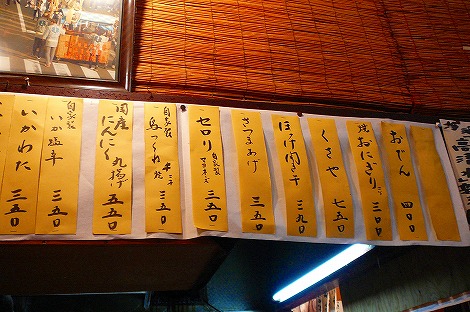 おでん 四〇〇
焼おにぎり
くさや 七五〇
ほっけ開き干 三九〇
さつまあげ 三五〇
セロリ 自家製マヨネーズ 三五〇
自家製 鳥つくね 三五〇
国産 にんにく 丸揚げ 五五〇
自家製 いか塩辛 三五〇
いかわた 三五〇